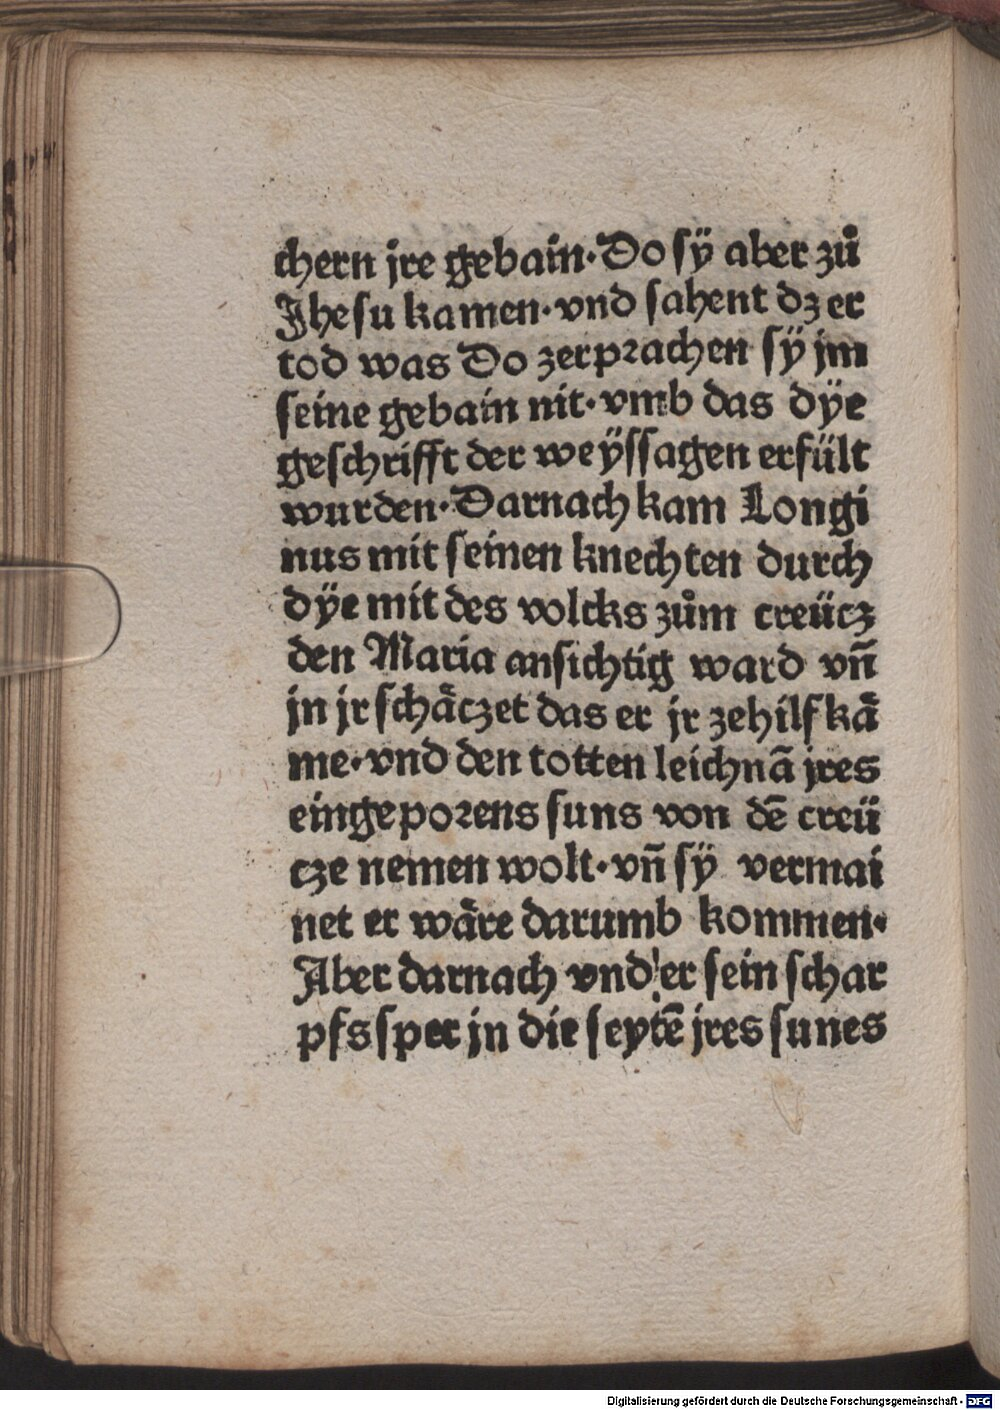 chern jre gebain·Do sÿ aber zů
Jhesu kamen·vnd sahent dz er
tod was Do zerprachen sÿ jm
seine gebain nit·vmb das dÿe
geschrifft der weÿssagen erfült
wurden·Darnach kam Longi
nus mit seinen knechten durch
dÿe mit des volcks zům creücz
den Maria ansichtig ward vn̄
jn jr schäczet das er jr zehilf kä
me·vnd den totten leichnā jres
eingeporens suns von dē creü
cze nemen wolt·vn̄ sÿ vermai
net er wäre darumb kommen·
Aber darnach vnd er sein schar
pfs sper jn die seytē jres sunes
Digitalisierung gefördert durch die Deutsche Forschungsgemeinschaft - DFG